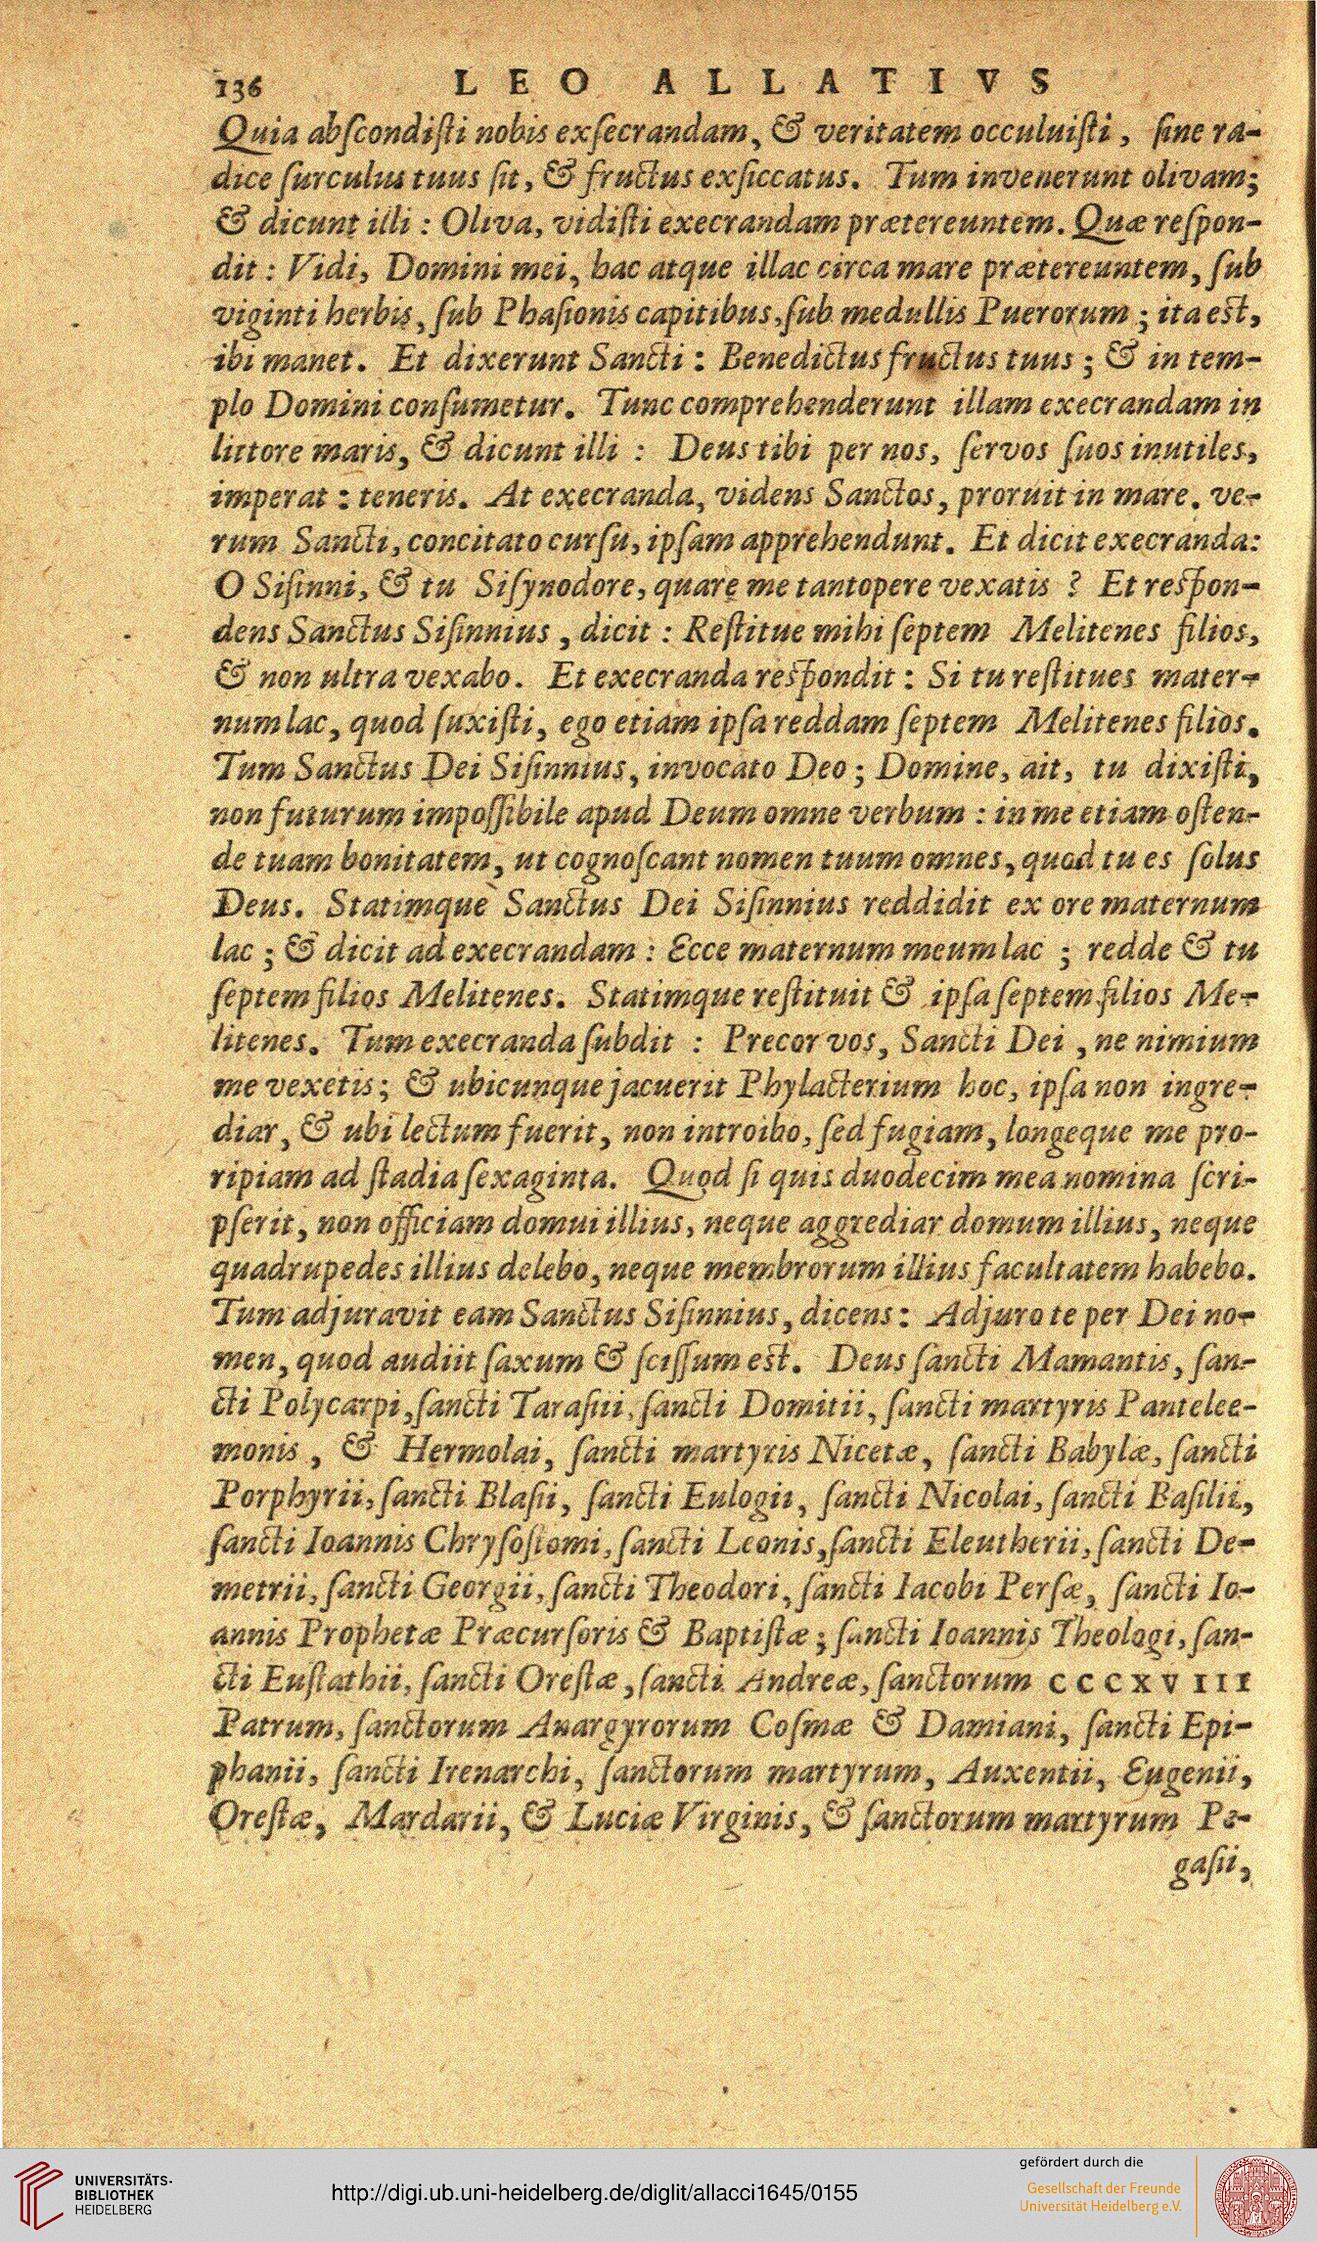 136 LEO ALLATIVS
Quia abſcondiſti nobis exſecrandam, & veritatem occuluiſti, ſine ra-
dice ſurculus tuus ſit, & fructus exſiccatus. Tum invenerunt olivam;
& dicunt illi: Oliva, vidiſti execrandam prætereuntem. Quæ reſpon-
dit: Vidi, Domini mei, hac atque illac circa mare prætereuntem, ſub
viginti herbis, ſub Phaſionis capitibus, ſub medullis Puerorum; ita eſt,
ibi manet. Et dixerunt Sancti: Benedictus fructus tuus; & in tem-
plo Domini conſumetur. Tunc comprehenderunt illam execrandam in
littore maris, & dicunt illi: Deus tibi per nos, ſervos ſuos inutiles,
imperat: teneris. At execranda, videns Sanctos, proruit in mare. ve-
rum Sancti, concitato curſu, ipſam apprehendunt. Et dicit execranda:
O Siſinni, & tu Siſynodore, quare me tantopere vexatis? Et reſpon-
dens Sanctus Siſinnius, dicit: Reſtitue mihi ſeptem Melitenes filios,
& non ultra vexabo. Et execranda reſpondit: Si tu reſtitues mater-
num lac, quod ſuxiſti, ego etiam ipſa reddam ſeptem Melitenes filios.
Tum Sanctus Dei Siſinnius, invocato Deo; Domine, ait, tu dixiſti,
non futurum impoſſibile apud Deum omne verbum: in me etiam oſten-
de tuam bonitatem, ut cognoſcant nomen tuum omnes, quod tu es ſolus
Deus. Statimquè Sanctus Dei Siſinnius reddidit ex ore maternum
lac; & dicit ad execrandam: Ecce maternum meum lac; redde & tu
ſeptem filios Melitenes. Statimque reſtituit & ipſa ſeptem filios Me-
litenes. Tum execranda ſubdit: Precor vos, Sancti Dei, ne nimium
me vexetis; & ubicunque jacuerit Phylacterium hoc, ipſa non ingre-
diar, & ubi lectum fuerit, non introibo, ſed fugiam, longeque me pro-
ripiam ad ſtadia ſexaginta. Quod ſi quis duodecim mea nomina ſcri-
pſerit, non officiam domui illius, neque aggrediar domum illius, neque
quadrupedes illius delebo, neque membrorum illius facultatem habebo.
Tum adjuravit eam Sanctus Siſinnius, dicens: Adjuro te per Dei no-
men, quod audiit ſaxum & ſciſſum eſt. Deus ſancti Mamantis, ſan-
cti Polycarpi, ſancti Taraſiii, ſancti Domitii, ſancti martyris Pantelee-
monis, & Hermolai, ſancti martyris Nicetæ, ſancti Babylæ, ſancti
Porphyrii, ſancti Blaſii, ſancti Eulogii, ſancti Nicolai, ſancti Baſilii,
ſancti Ioannis Chryſoſtomi, ſancti Leonis, ſancti Eleutherii, ſancti De-
metrii, ſancti Georgii, ſancti Theodori, ſancti Iacobi Perſæ, ſancti Io-
annis Prophetæ Præcurſoris & Baptiſtæ; ſancti Ioannis Theologi, ſan-
cti Euſtathii, ſancti Oreſtæ, ſancti Andreæ, ſanctorum CCCXVIII
Patrum, ſanctorum Anargyrorum Coſmæ & Damiani, ſancti Epi-
phanii, ſancti Irenarchi, ſanctorum martyrum, Auxentii, Eugenii,
Oreſtæ, Mardarii, & Luciæ Virginis, & ſanctorum martyrum Pe-
gaſii,
UNIVERSITÄTS-
BIBLIOTHEK
HEIDELBERG
http://digi.ub.uni-heidelberg.de/diglit/allacci1645/0155
gefördert durch die
Gesellschaft der Freunde
Universität Heidelberg e.V.